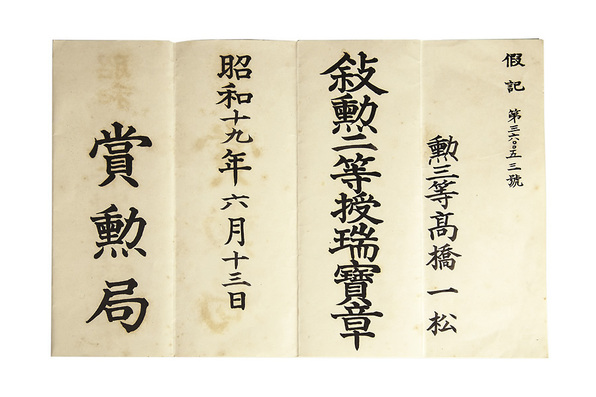 假記 第三六〇五三號
勲三等髙橋一松
敍勲二等授瑞寶章
昭和十九年六月十三日
賞勲局